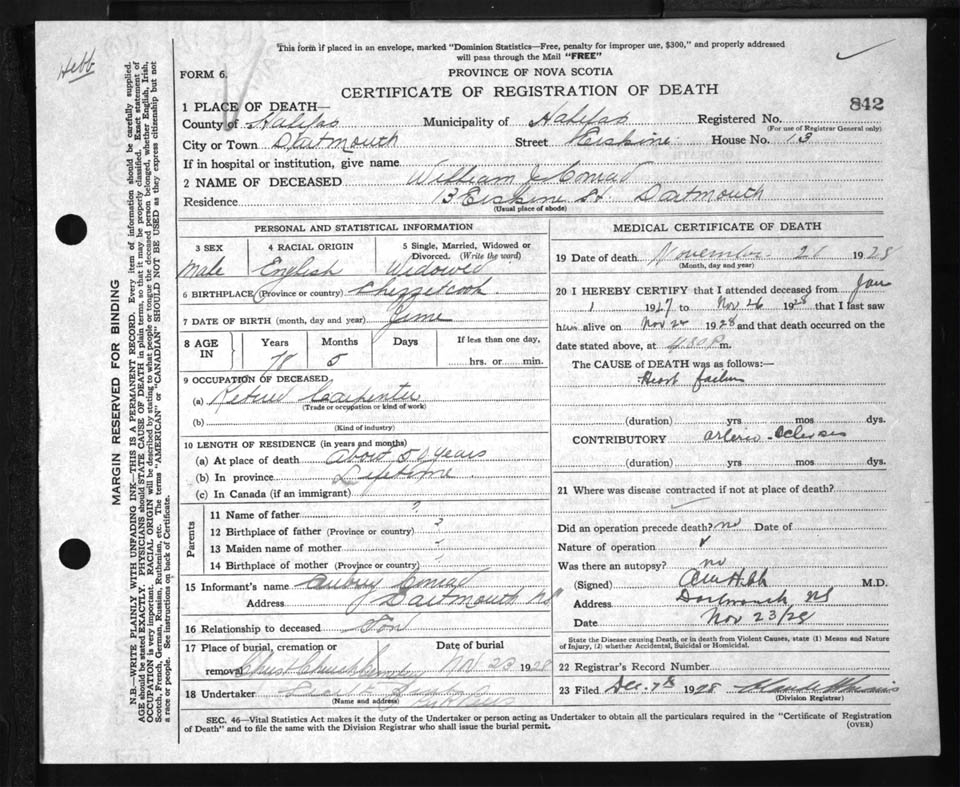 This form if placed in an envelope, marked "Dominion Statistics—Free, penalty for improper use, $300," and properly addressed
will pass through the Mail "FREE"
Hebb
FORM 6.
PROVINCE OF NOVA SCOTIA
CERTIFICATE OF REGISTRATION OF DEATH
842
1 PLACE OF DEATH—
County of Halifax Municipality of Halifax Registered No.
(For use of Registrar General only)
City or Town Dartmouth Street Erskine House No. 13
If in hospital or institution, give name
2 NAME OF DECEASED William J Conrad
Residence 13 Erskine St. Dartmouth
(Usual place of abode)
MARGIN RESERVED FOR BINDING
N.B.—WRITE PLAINLY WITH UNFADING INK—THIS IS A PERMANENT RECORD. Every item of information should be carefully supplied.
AGE should be stated EXACTLY. PHYSICIANS should STATE CAUSE OF DEATH in plain terms, so that it may be properly classified. Exact statement of
OCCUPATION is very important. RACIAL ORIGIN will be described by stating to what people or tongue the deceased person belonged, whether English, Irish,
Scotch, French, German, Russian, Ruthenian, etc. The terms "AMERICAN" or "CANADIAN" SHOULD NOT BE USED as they express citizenship but not
a race or people. See instructions on back of Certificate.
PERSONAL AND STATISTICAL INFORMATION
3 SEX 4 RACIAL ORIGIN 5 Single, Married, Widowed or
Divorced. (Write the word)
Male English Widowed
6 BIRTHPLACE (Province or country) Chezzetcook
7 DATE OF BIRTH (month, day and year) June
8 AGE IN Years Months Days If less than one day,
78 5 hrs. or min.
9 OCCUPATION OF DECEASED
(a) Retired Carpenter
(Trade or occupation or kind of work)
(b)
(Kind of industry)
10 LENGTH OF RESIDENCE (in years and months)
(a) At place of death About 50 years
(b) In province Lifetime
(c) In Canada (if an immigrant)
Parents
11 Name of father ?
12 Birthplace of father (Province or country) ?
13 Maiden name of mother
14 Birthplace of mother (Province or country)
15 Informant's name Aubrey Conrad
Address Dartmouth NS
16 Relationship to deceased Son
17 Place of burial, cremation or Date of burial
removal Christ Church Nov 23 1928
18 Undertaker
(Name and address)
MEDICAL CERTIFICATE OF DEATH
19 Date of death November 21 1928
(Month, day and year)
20 I HEREBY CERTIFY that I attended deceased from Jan
1 1927 to Nov 1928 that I last saw
him alive on Nov 1928 and that death occurred on the
date stated above, at 4.30 P m.
The CAUSE OF DEATH was as follows:
Heart failure
(duration) yrs mos dys.
CONTRIBUTORY arterio-sclerosis
(duration) yrs mos dys.
21 Where was disease contracted if not at place of death?
Did an operation precede death? no Date of
Nature of operation
Was there an autopsy? no
(Signed) M.D.
Address Dartmouth NS
Date Nov 23/28
State the Disease causing Death, or in death from Violent Causes, state (1) Means and Nature
of Injury, (2) whether Accidental, Suicidal or Homicidal.
22 Registrar's Record Number
23 Filed Dec. 7th 1928
(Division Registrar)
SEC. 46—Vital Statistics Act makes it the duty of the Undertaker or person acting as Undertaker to obtain all the particulars required in the "Certificate of Registration
of Death" and to file the same with the Division Registrar who shall issue the burial permit.
(OVER)